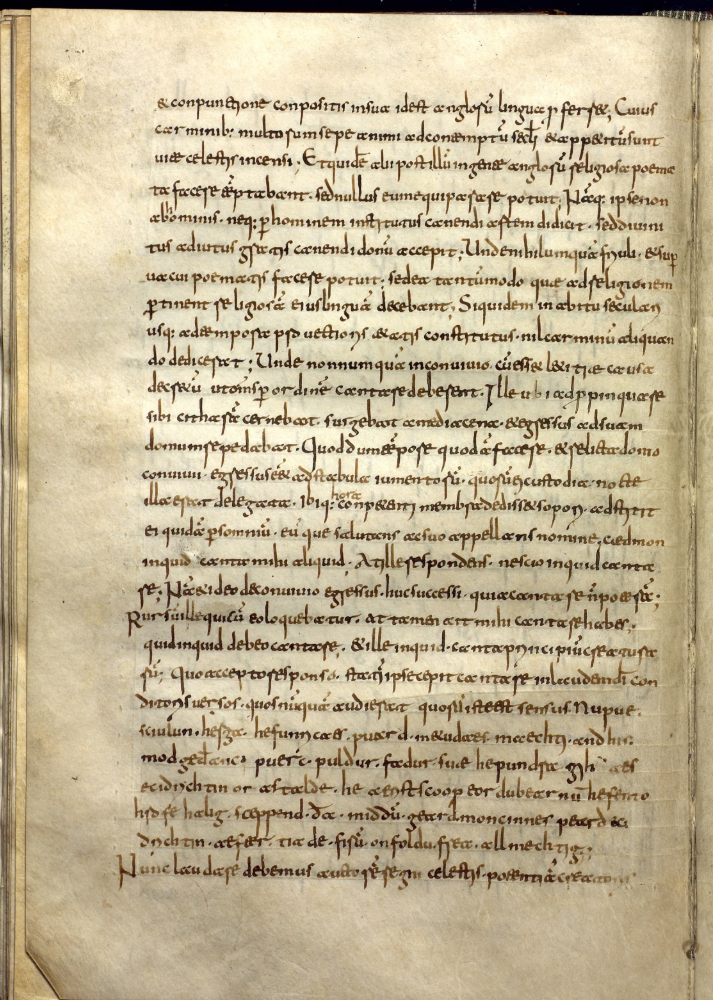 & conpunctione conpositis insua id est anglosū lingua ꝓferr&; Cuius
carminib; multorum sepe animi adcontemptū secłi & appetitū sunt
uitae celestis incensi. Et quidē alii post illū ingente anglorū religiosa poema
ta facere tēptabant. sed nullus eum equiparare potuit; Nāq; ipse non
abhominis. neq; ꝑ hominem institutus canendi artem didicit. sed diuini
tus adiutus gratis canendi donū accepit; Unde nihil umquā friuli. & sup
uacui poematis facere potuit; sed ea tantūmodo quae adreligionem
ꝑtinent religiosā eius linguā decebant; Siquidem in abitu seculari
usq; ad tempora ꝓuectioris aetatis constitutus. nil carminū aliquan
do didicerat; Unde nonnumquā inconuiuio. cū ess& l&itiae causa
decretū ut omīs ꝑ ordinē cantare deberent. Ille ubi adꝓpinquare
sibi citharā cernebat. surgebat amedia cena. & egressus ad suam
domum repedabat. Quod dum tēpore quodā faceret. & relicta domo
conuiuii. egressus ēēt ad stabula iumentorū. quorū ei custodia nocte
illa erat delegata. Ibiq; hora conpetenti membra dediss& sopori. adstitit
ei quidā ꝑ somniū. eūque salutans ac suo appellans nomine, caedmon
inquid canta mihi aliquid. At ille respondens. nescio inquid canta
re; Nā & ideo deconuiuio egressus. huc successi. quia cantare n̄ poterā;
Rursū ille qui cū eo loquebatur. attamen ait mihi cantare habes;
quid inquid debeo cantare. & ille inquid. canta principiū creatura
rū; Quo accepto responso. statī ipse cepit cantare inlaudem dī con
ditoris uersos. quos nūquā audierat quorū iste est sensus Nu pue.
sciulun. herga. hefunricaes. puard. metudaes. maechti. and his.
modgedanc. puerc. puldur. fadur. sue he pundra gihuaes
eci drichtin or astalde. he aerist scoop eordu bearnū hefento
hrofe halig. sceppend. da. middū. geard. moncinnes peard eci
drichtin. aefter. tiade. firū. on foldu. frea. allmechtig;
Nunc laudare debemus auctorē regni celestis. potentiā creatoris